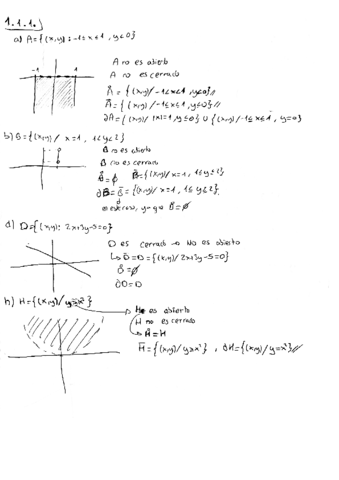 1.1.1.
a) A={(x,y): -1≤x≤1, y<0}
A no es abierto
A no es cerrado
-1 1
Å = {(x,y)/ -1<x<1, y<0}//
Ā = {(x,y)/ -1≤x≤1, y≤0}//
∂A={(x,y)/ |x|=1, y≤0} ∪ {(x,y)/ -1≤x≤1, y=0}
b) B={(x,y)/ x=1, 1<y<2}
B no es abierto
B no es cerrado
B̊=∅ B̄={(x,y)/ x=1, 1≤y≤2}
∂B = B̄ = {(x,y)/ x=1, 1≤y≤2},
ya que B̊=∅
d) D={(x,y): 2x+3y-5=0}
D es cerrado → No es abierto
↳ D̄=D={(x,y)/ 2x+3y-5=0}
D̊=∅
∂D=D
h) H={(x,y)/ y>x²}
H es abierto
H no es cerrado
H̊=H
H̄={(x,y)/ y≥x²}, ∂H={(x,y)/ y=x²}//